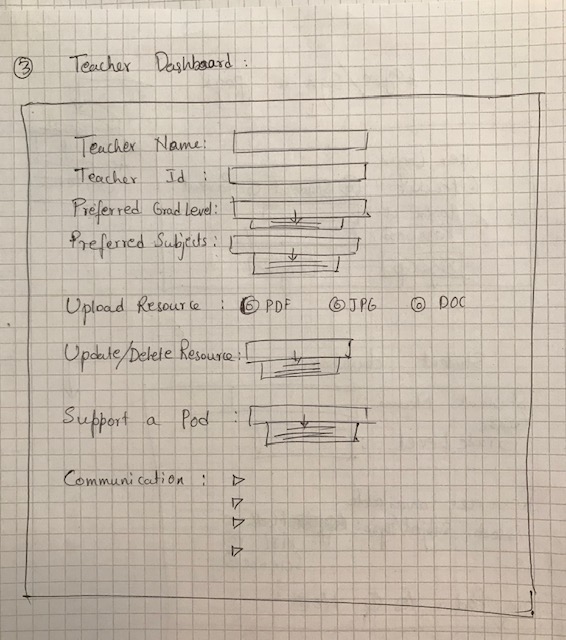 3 Teacher Dashboard :
Teacher Name:
Teacher Id :
Preferred Grad Level:
Preferred Subjects:
Upload Resource : PDF JPG DOC
Update/Delete Resource:
Support a Pod :
Communication :